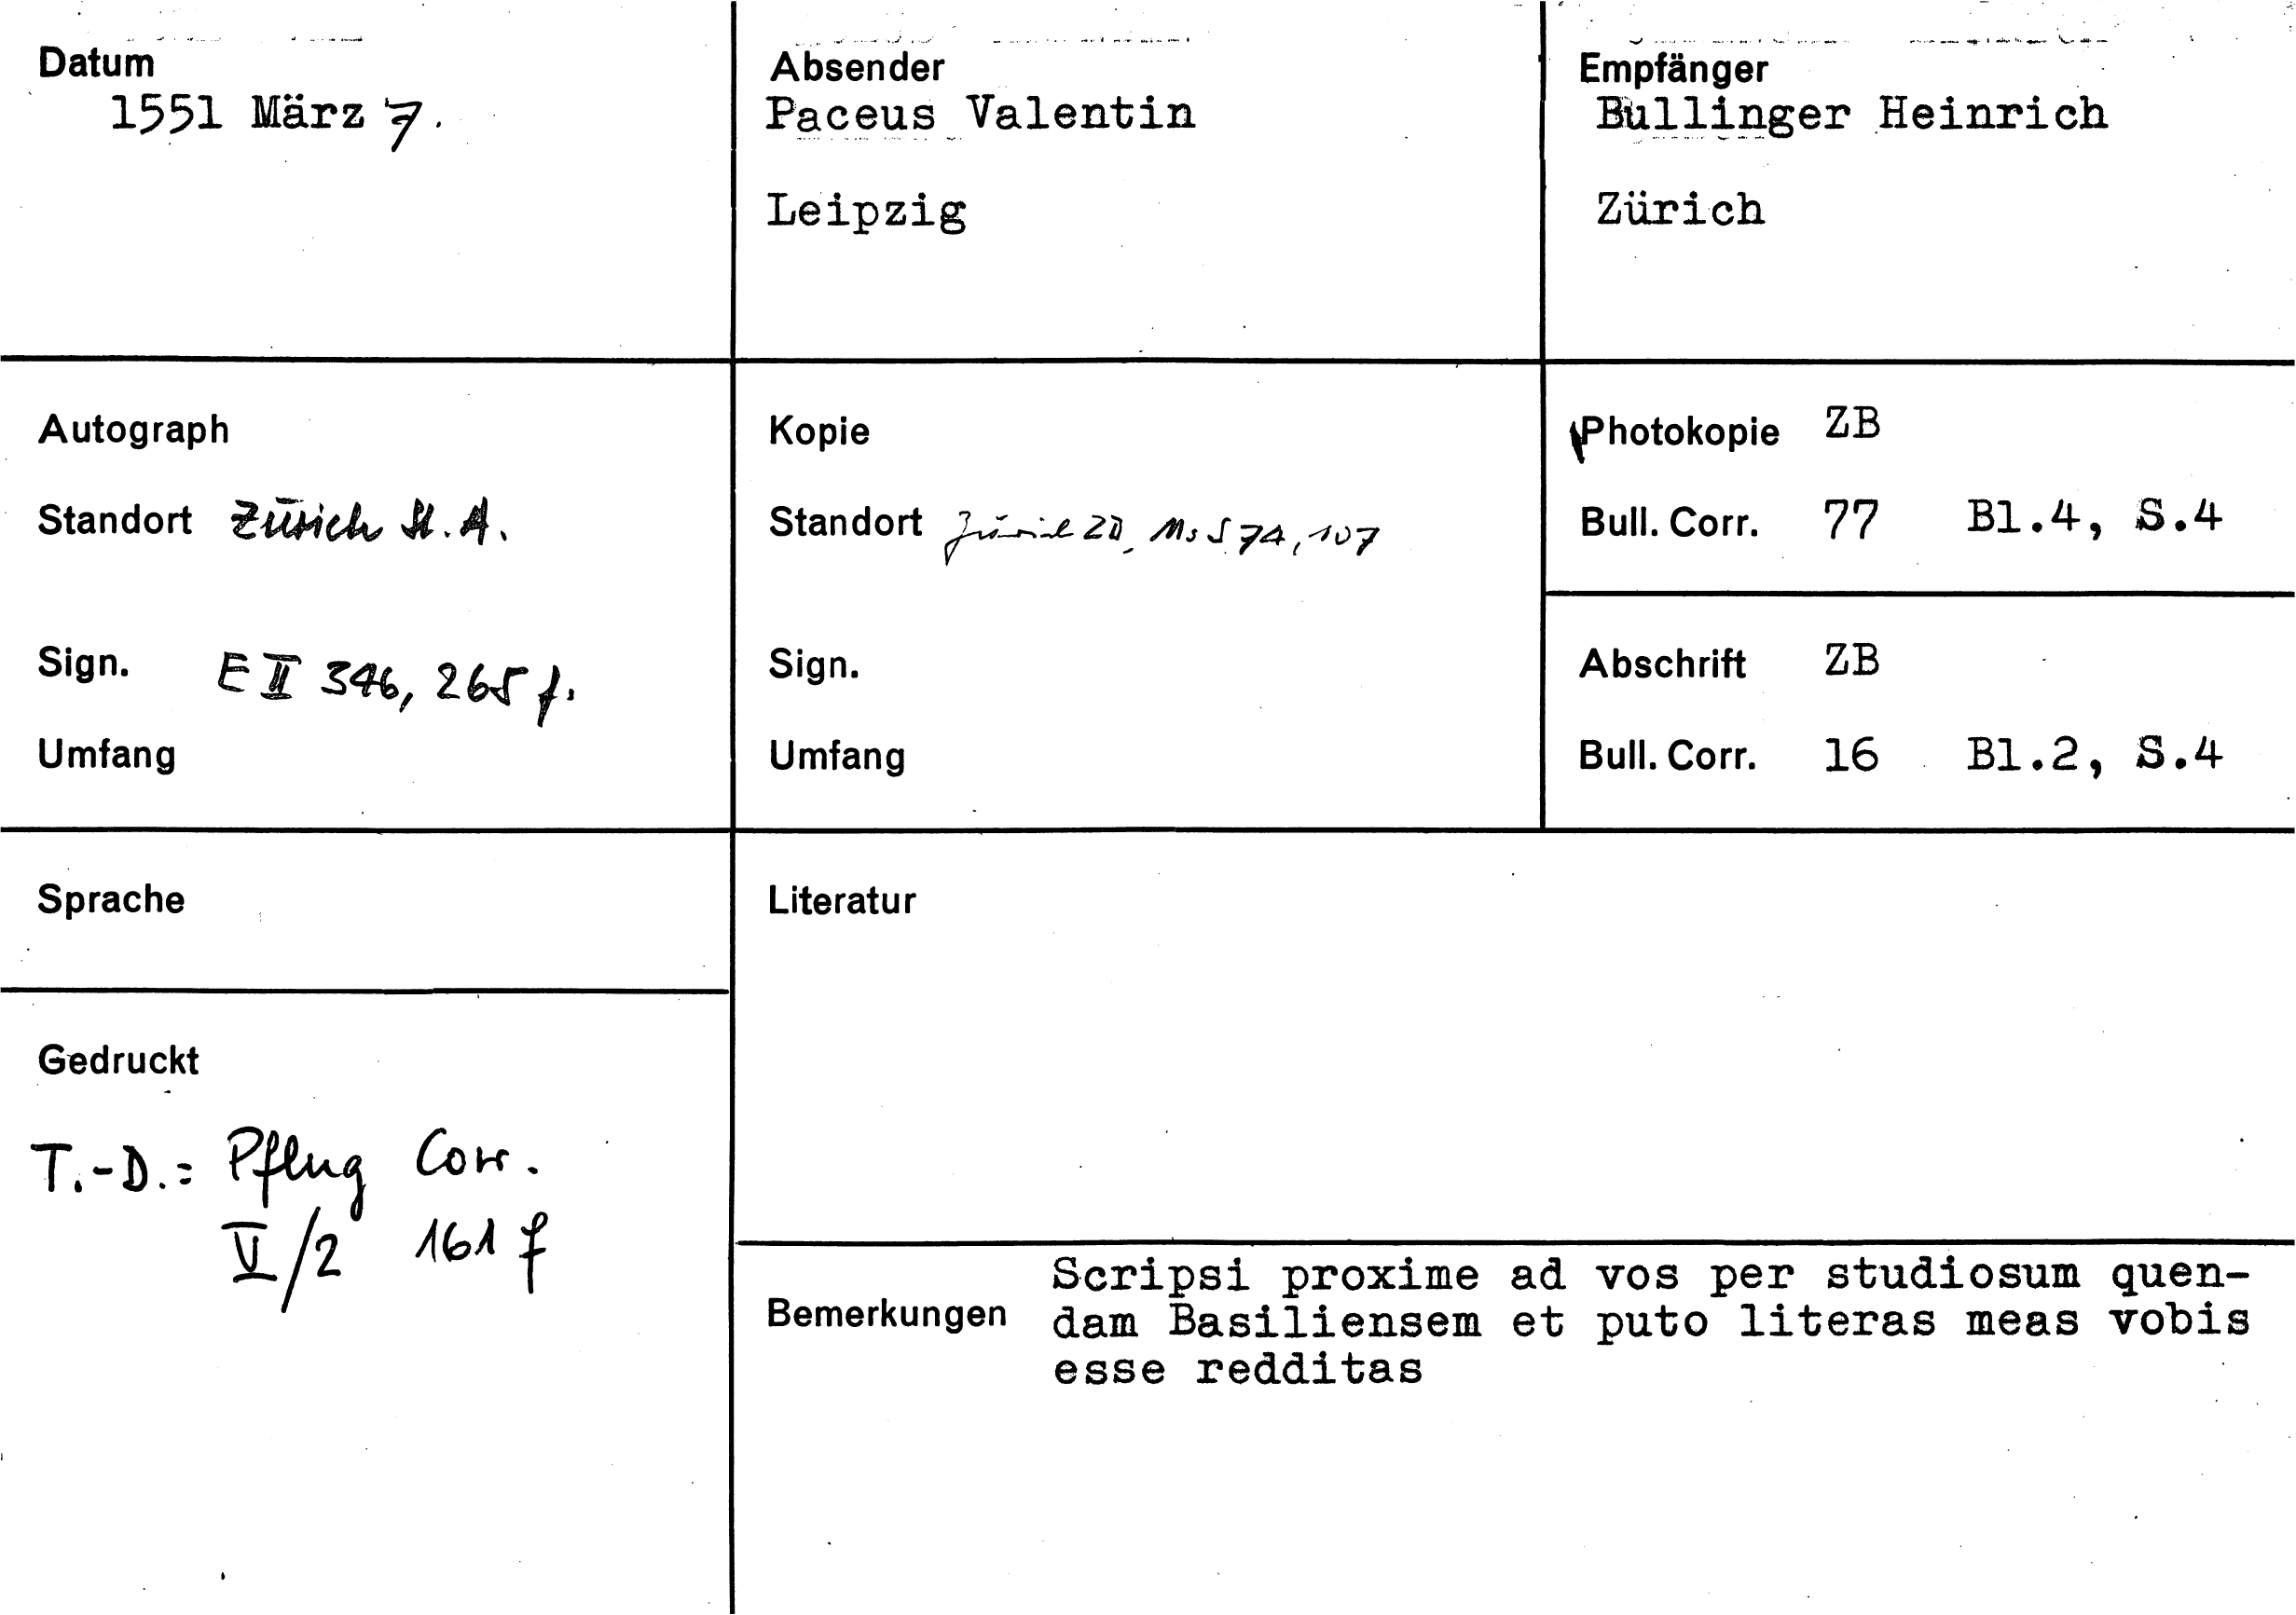 Datum
1551 März 7.
Absender
Paceus Valentin
Leipzig
Empfänger
Bullinger Heinrich
Zürich
Autograph
Standort Zürich St. A.
Sign. E II 346, 265 f.
Umfang
Kopie
Standort Zürich ZB, Ms S 74, 107
Sign.
Umfang
Photokopie ZB
Bull. Corr. 77 Bl.4, S.4
Abschrift ZB
Bull. Corr. 16 Bl.2, S.4
Sprache
Gedruckt
T.-D.: Pflug Corr.
V/2 161 f
Literatur
Bemerkungen
Scripsi proxime ad vos per studiosum quen-
dam Basiliensem et puto literas meas vobis
esse redditas